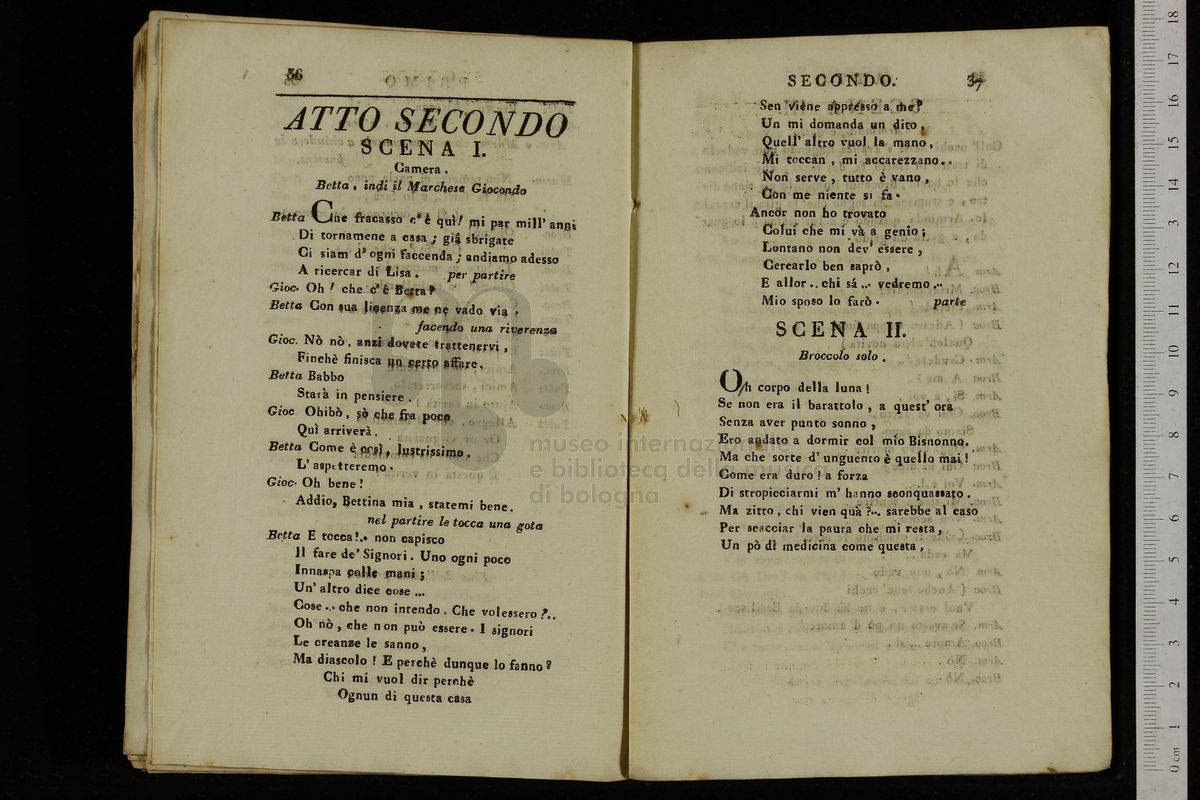 36
ATTO SECONDO
SCENA I.
Camera.
Betta, indi il Marchese Giocondo
Betta Che fracasso c'è quì! mi par mill' anni
Di tornamene a casa; già sbrigate
Ci siam d'ogni faccenda; andiamo adesso
A ricercar di Lisa. per partire
Gioc. Oh! che c'è Betta?
Betta Con sua licenza me ne vado via.
facendo una riverenza
Gioc. Nò nò, anzi dovete trattenervi,
Finchè finisca un certo affare.
Betta Babbo
Starà in pensiere.
Gioc Ohibò, sò che fra poco
Quì arriverà.
Betta Come è così, lustrissimo,
L' aspetteremo.
Gioc. Oh bene!
Addio, Bettina mia, statemi bene.
nel partire le tocca una gota
Betta E tocca!.. non capisco
Il fare de' Signori. Uno ogni poco
Innaspa colle mani;
Un' altro dice cose ...
Cose... che non intendo. Che volessero?..
Oh nò, che non può essere. I signori
Le creanze le sanno,
Ma diascolo! E perchè dunque lo fanno?
Chi mi vuol dir perchè
Ognun di questa casa
SECONDO. 37
Sen viene appresso a me?
Un mi domanda un dito,
Quell' altro vuol la mano,
Mi toccan, mi accarezzano..
Non serve, tutto è vano,
Con me niente si fa.
Ancor non ho trovato
Colui che mi và a genio;
Lontano non dev' essere,
Cercarlo ben saprò,
E allor.. chi sá... vedremo...
Mio sposo lo farò. parte
SCENA II.
Broccolo solo.
Oh corpo della luna!
Se non era il barattolo, a quest' ora
Senza aver punto sonno,
Ero andato a dormir col mio Bisnonno.
Ma che sorte d' unguento è quello mai!
Come era duro! a forza
Di stropicciarmi m' hanno sconquassato.
Ma zitto, chi vien quà?... sarebbe al caso
Per scacciar la paura che mi resta,
Un pò di medicina come questa,
museo internazionale
e biblioteca della musica
di bologna
0 cm 1 2 3 4 5 6 7 8 9 10 11 12 13 14 15 16 17 18